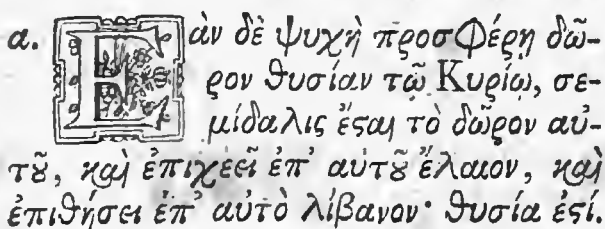 α. Ἐὰν δὲ ψυχὴ προσφέρῃ δῶ-
ρον θυσίαν τῷ Κυρίῳ, σε-
μίδαλις ἔϛαι τὸ δῶρον αὐ-
τȣ͂, καὶ ἐπιχεεῖ ἐπ' αὐτȣ͂ ἔλαιον, καὶ
ἐπιθήσει ἐπ' αὐτὸ λίβανον· θυσία ἐϛί.